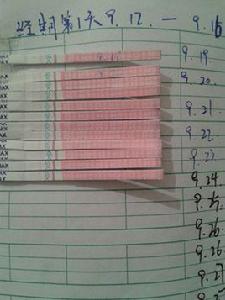 经期第1天 9.12. — 9.16
9.19.
9.20.
9.21.
9.22.
9.23.
9.24.
9.25.
9.26
9.26
9.27